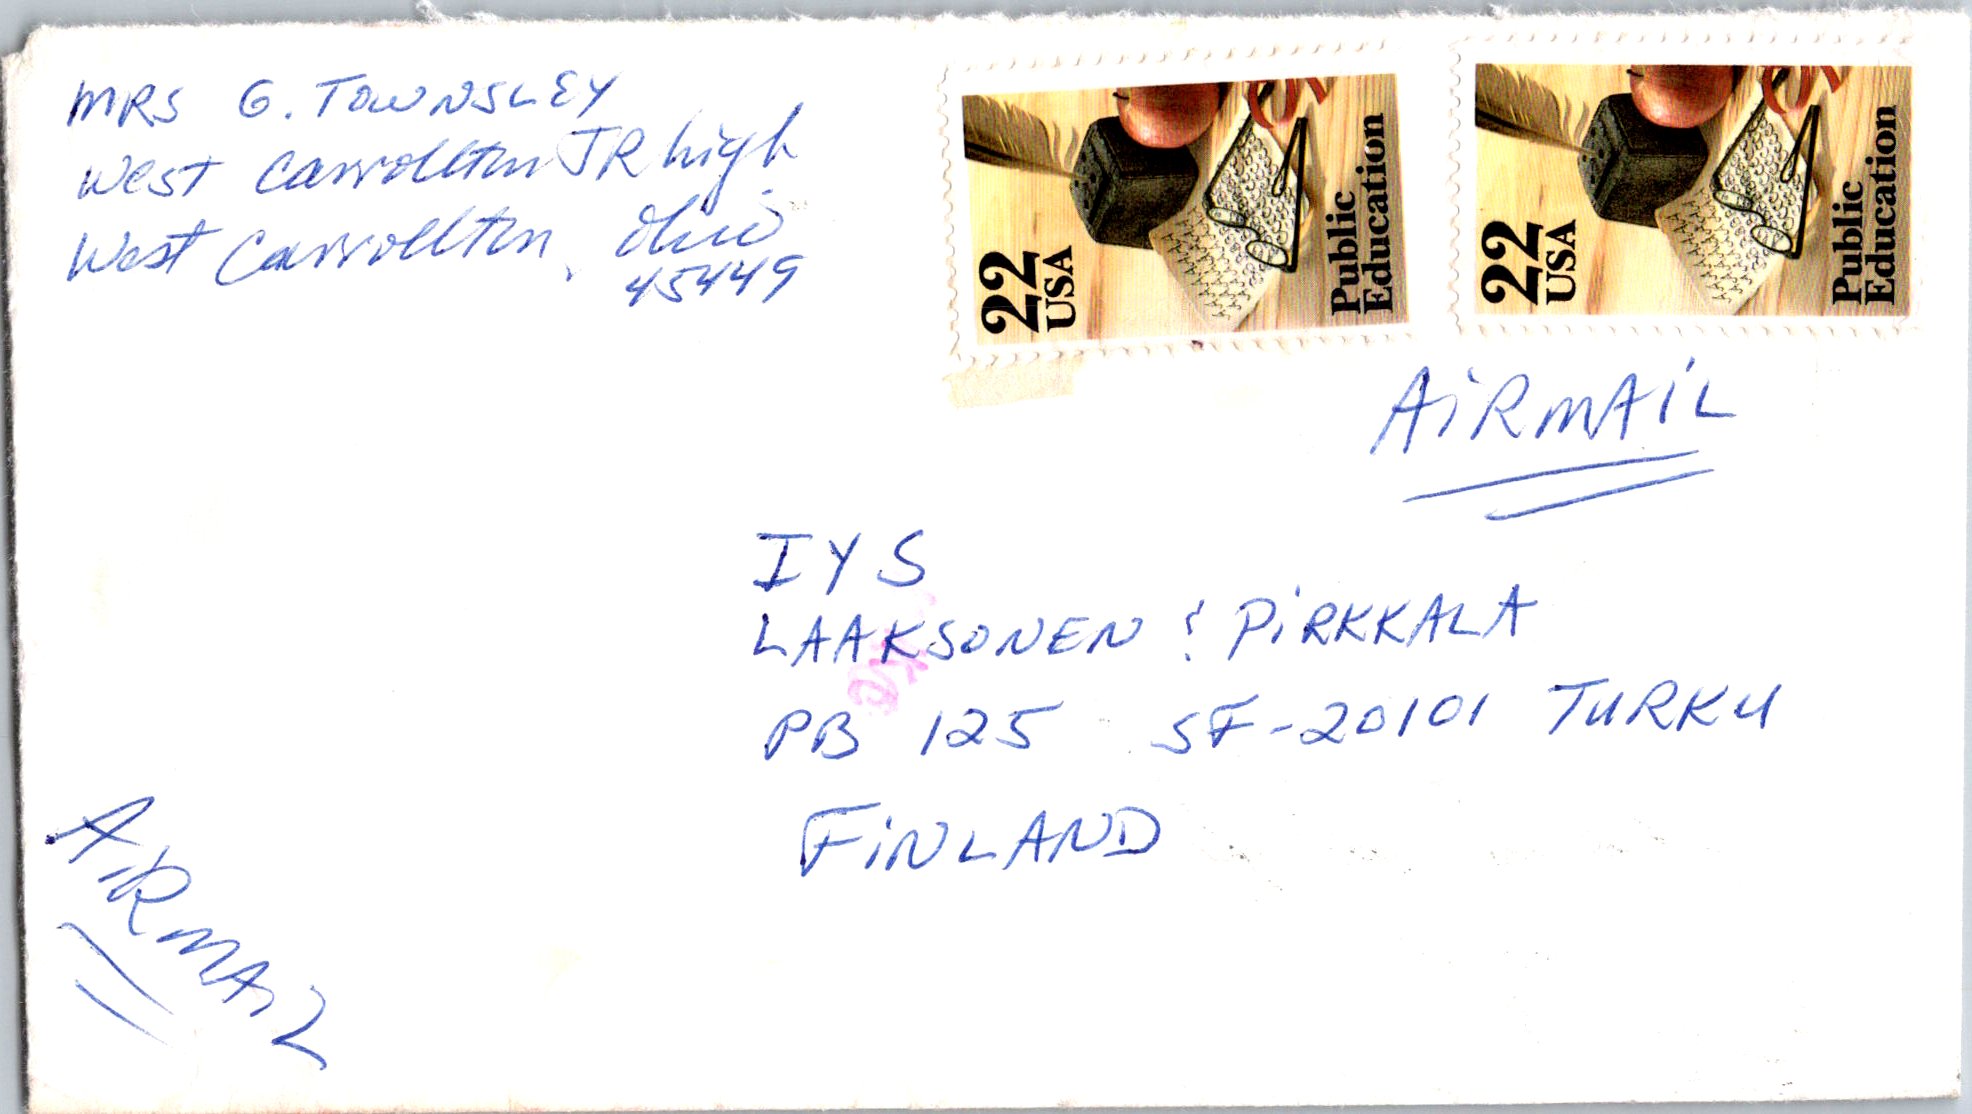 MRS G. TOWNSLEY
West Carrollton JR high
West Carrollton, Ohio
45449
22
USA
Public
Education
22
USA
Public
Education
AiRmAiL
IYS
LAAKSONEN & PiRKKALA
PB 125 SF-20101 TURKU
FiNLAND
AiRMAiL